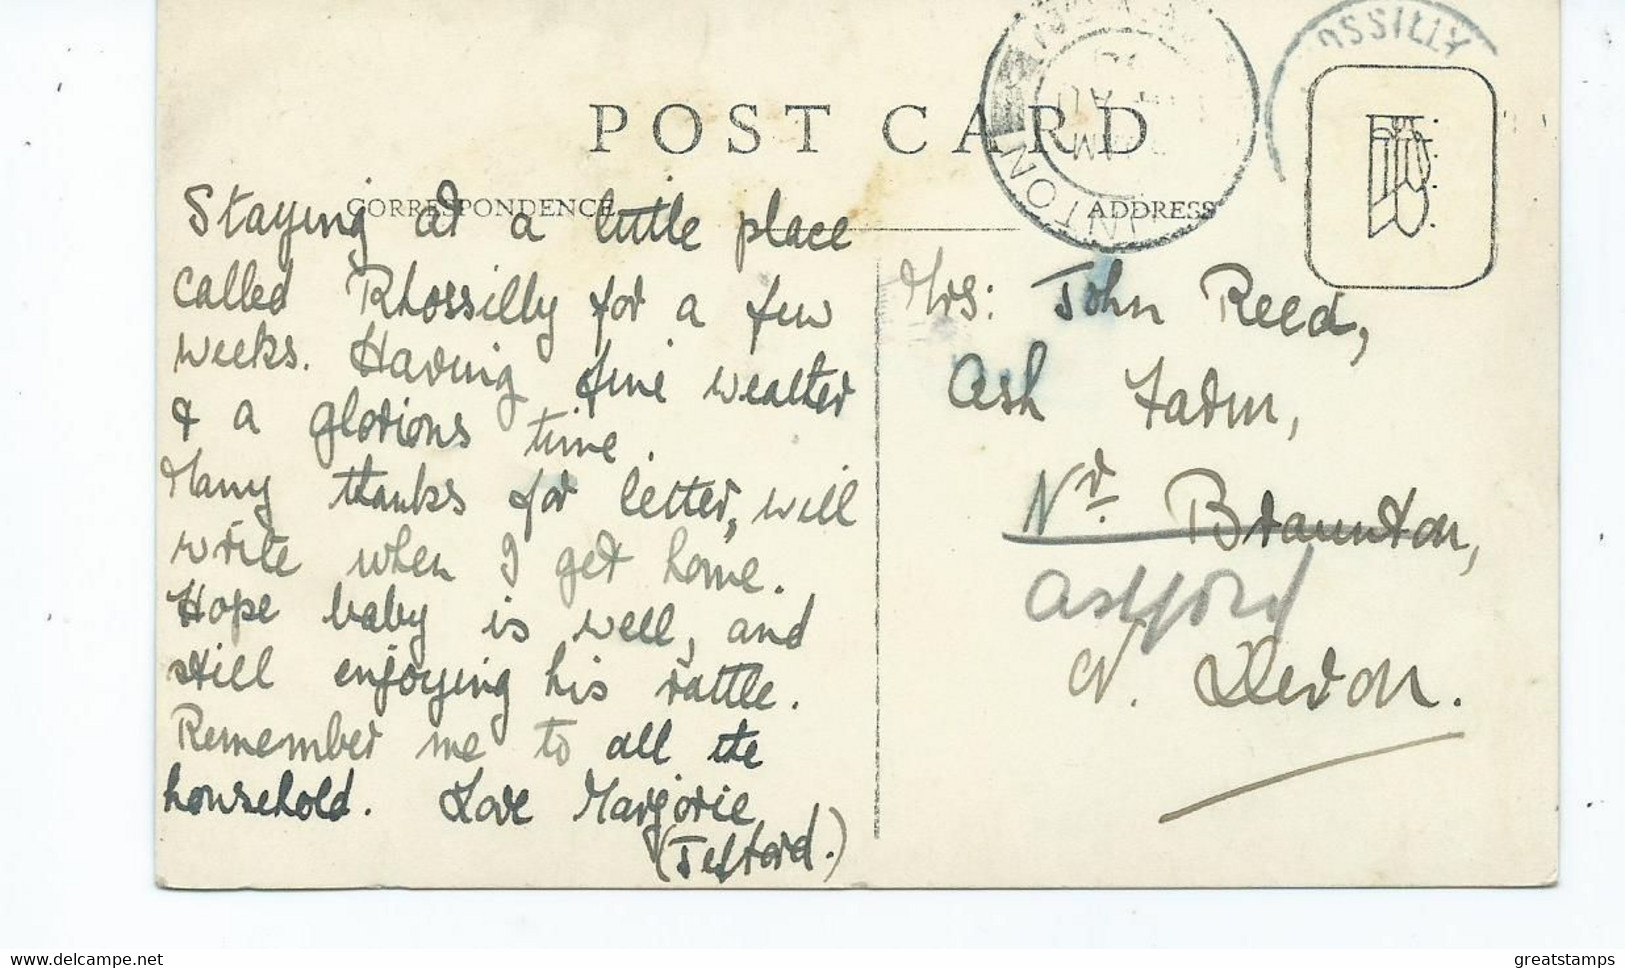 POST CARD
CORRESPONDENCE
ADDRESS
OSSILLY
AU
Staying at a little place
called Rhossilly for a few
weeks. Having fine weather
& a glorious time.
Many thanks for letter, will
write when I get home.
Hope baby is well, and
still enjoying his rattle.
Remember me to all the
household. Love Marjorie
(Telford.)
Mrs: John Reed,
Ash Farm,
Nr. Braunton,
Ashford
N. Devon.
www.delcampe.net
greatstamps